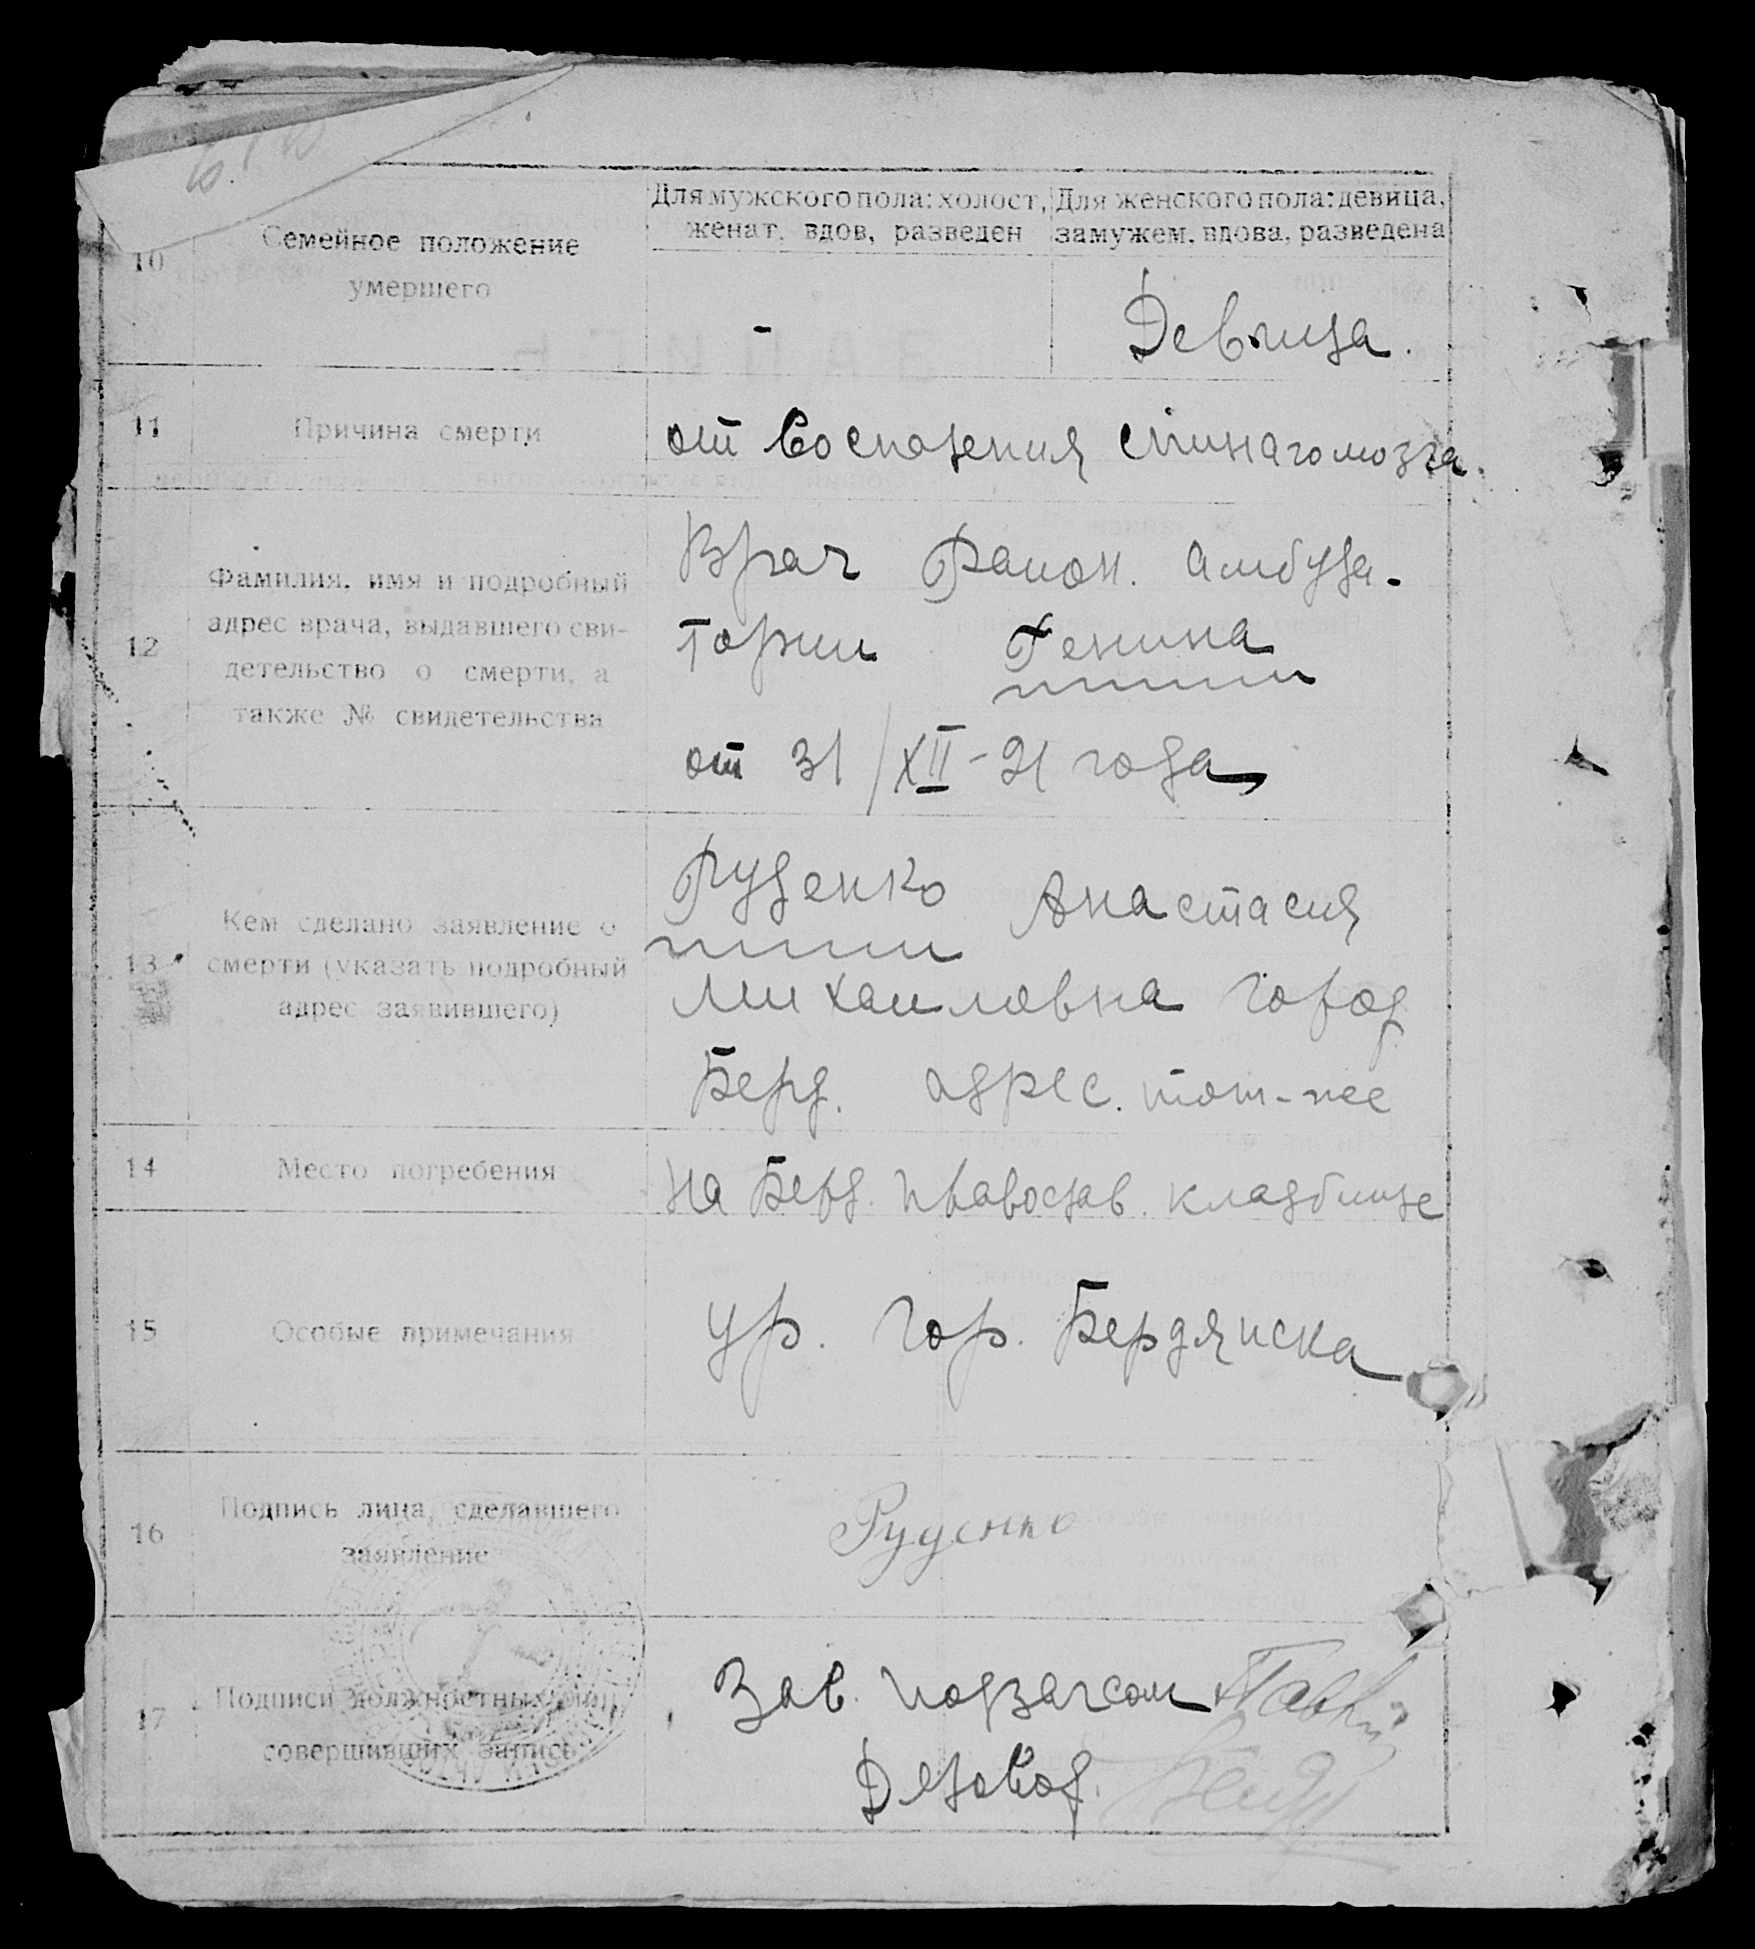 Для мужского пола: холост, женат, вдов, разведен
Для женского пола: девица, замужем, вдова, разведена
10
Семейное положение
умершего
-
Девица.
11
Причина смерти
от Воспаления спинагомозга.
12
Фамилия, имя и подробный
адрес врача, выдавшего сви-
детельство о смерти, а
также № свидетельства
Врач Район. амбула-
тории Генина
от 31/XII-21 года
13
Кем сделано заявление о
смерти (указать подробный
адрес заявившего)
Руденко Анастасия
Михаиловна город
Берд. адрес. тот-же
14
Место погребения
на Берд. православ. кладбище
15
Особые примечания
ур. гор. Бердянска
16
Подпись лица, сделавшего
заявление
Руденко
17
Подписи должностных лиц,
совершивших запись
Зав. подзагсом
Деловод.